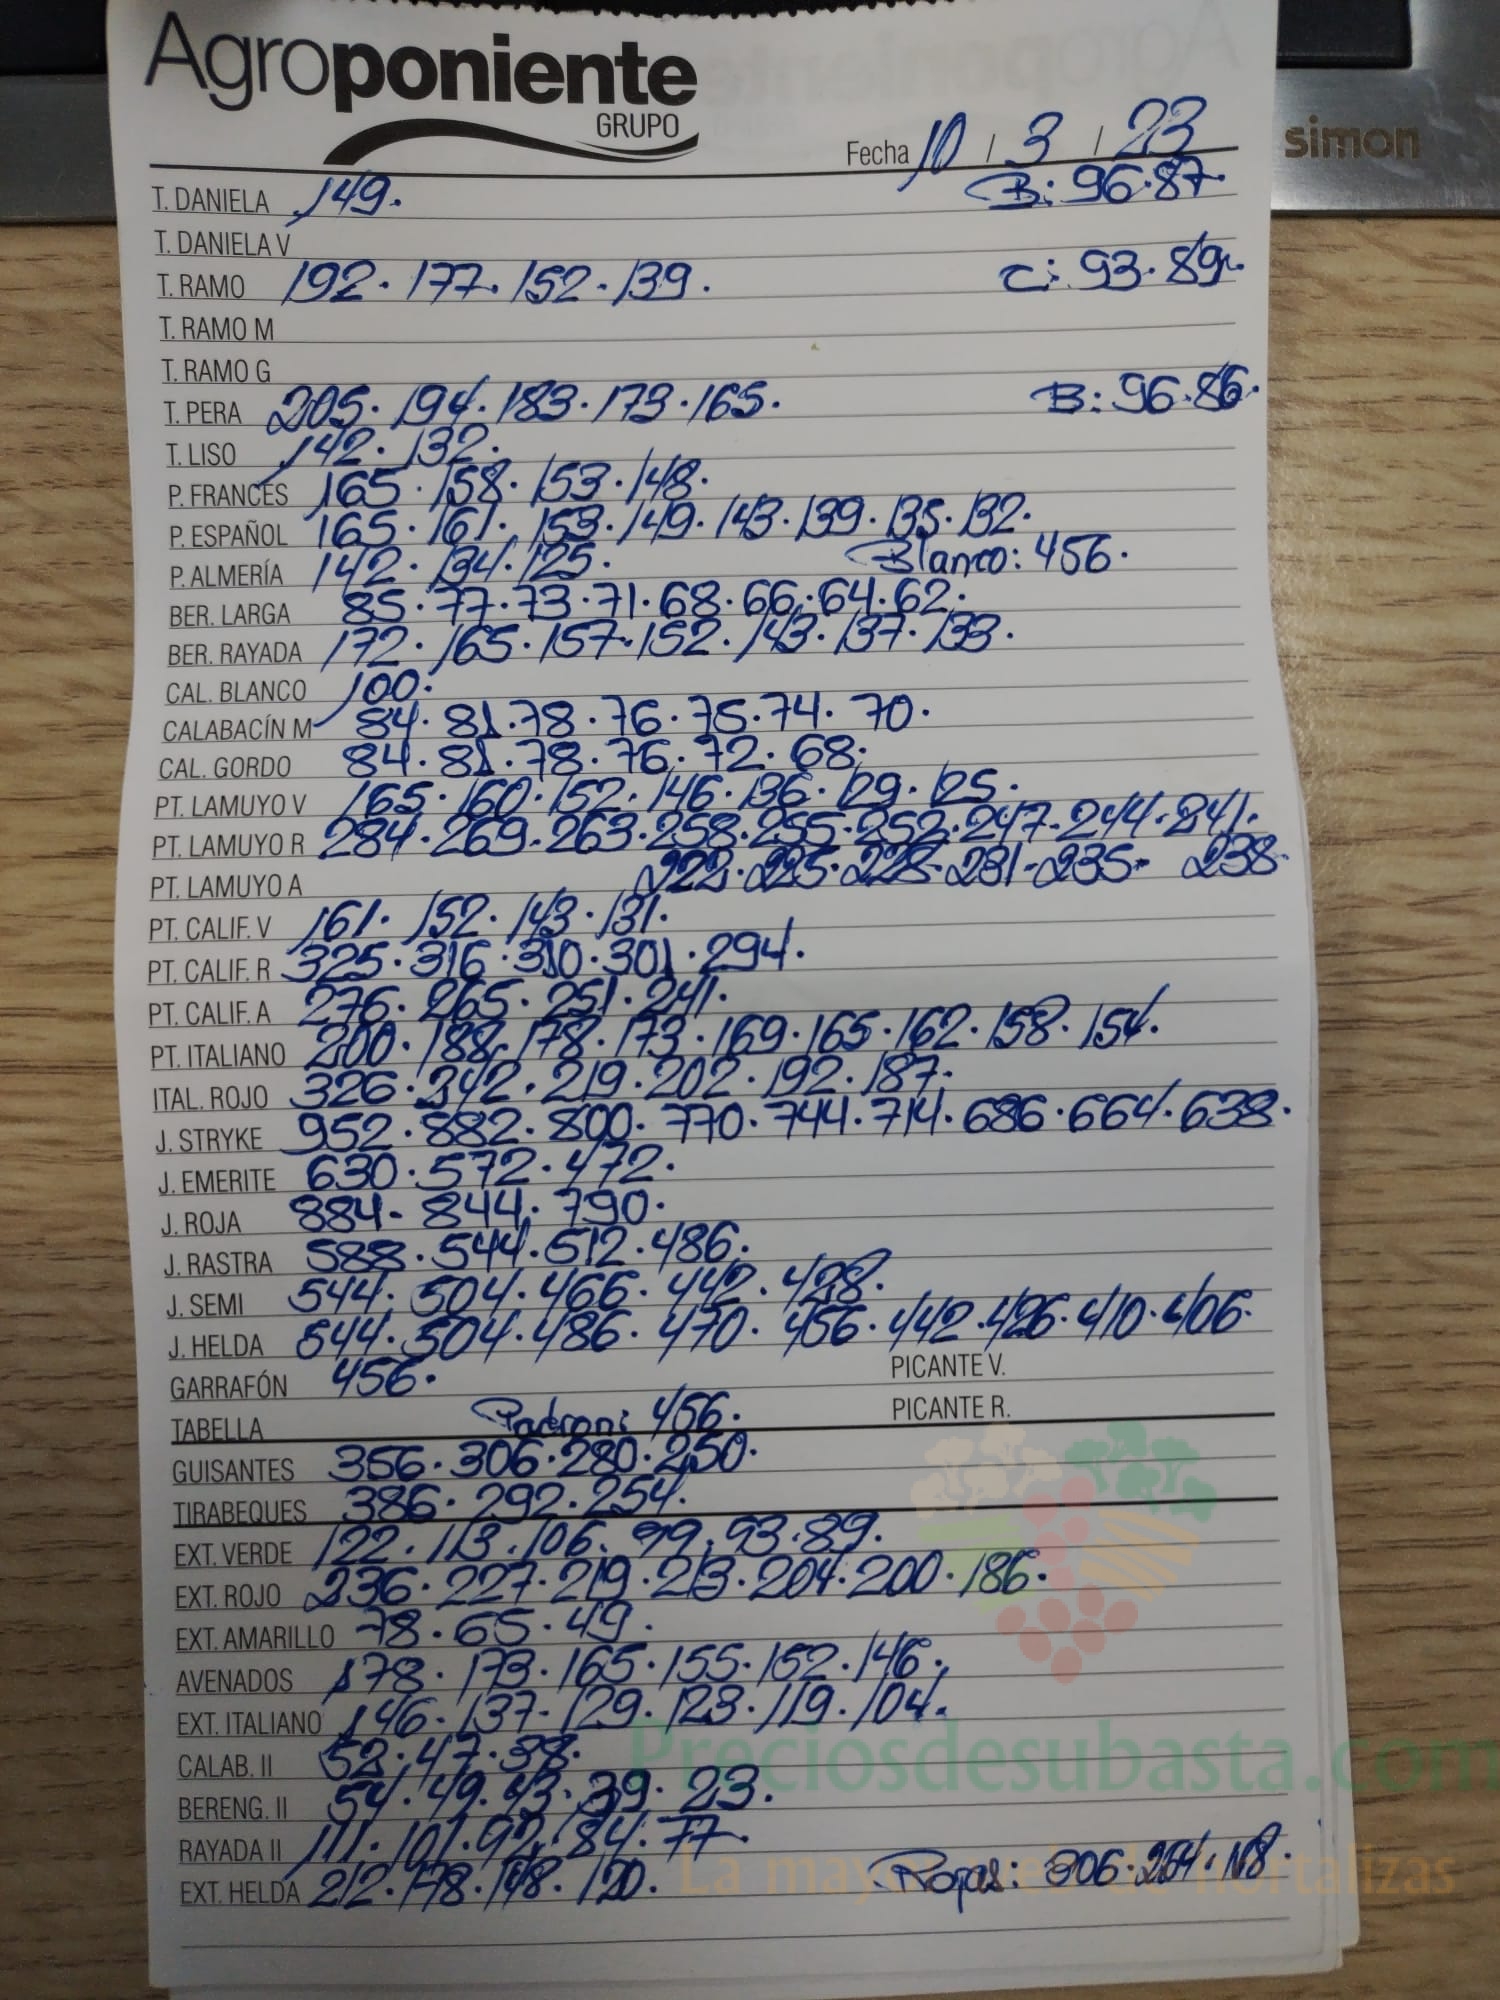 Agroponiente
GRUPO
simon
Fecha 10 / 3 / 23
T. DANIELA 149. B: 96.87.
T. DANIELA V
T. RAMO 192. 177. 152. 139. C: 93.89.
T. RAMO M
T. RAMO G
T. PERA 205. 194. 183. 173. 165. B: 96.86.
T. LISO 142. 132.
P. FRANCÉS 165. 158. 153. 148.
P. ESPAÑOL 165. 161. 153. 149. 143. 139. 135. 132.
P. ALMERÍA 142. 134. 125. Blanco: 456.
BER. LARGA 85.77.73.71.68.66.64.62.
BER. RAYADA 172. 165. 157. 152. 143. 137. 133.
CAL. BLANCO 100.
CALABACÍN M 84. 81.78.76.75.74. 70.
CAL. GORDO 84.81.78.76.72.68.
PT. LAMUYO V 165. 160. 152. 146. 136. 129. 125.
PT. LAMUYO R 284.269.263.258.255.252.247.244.241.
PT. LAMUYO A 222.225.228.231.235. 238.
PT. CALIF. V 161. 152. 143. 131.
PT. CALIF. R 325.316.310.301.294.
PT. CALIF. A 276. 265. 251. 241.
PT. ITALIANO 200. 188. 178. 173. 169. 165. 162. 158. 154.
ITAL. ROJO 326. 242. 219. 202. 192. 187.
J. STRYKE 952. 882. 800. 770. 744. 714. 686. 664. 638.
J. EMERITE 630. 572. 472.
J. ROJA 884. 844. 790.
J. RASTRA 588. 544. 512. 486.
J. SEMI 544. 504. 466. 442. 428.
J. HELDA 544. 504. 486. 470. 456. 442. 426. 410. 406.
GARRAFÓN 456. PICANTE V.
TABELLA Padron: 456. PICANTE R.
GUISANTES 356. 306. 280. 250.
TIRABEQUES 386. 292. 254.
EXT. VERDE 122. 113. 106. 99. 93. 89.
EXT. ROJO 236. 227. 219. 213. 204. 200. 186.
EXT. AMARILLO 78. 65. 49.
AVENADOS 178. 173. 165. 155. 152. 146.
EXT. ITALIANO 146. 137. 129. 123. 119. 104.
CALAB. II 52. 47. 38.
Preciosdesubasta.com
BERENG. II 54. 49. 43. 39. 23.
RAYADA II 111. 101. 92. 84. 77.
EXT. HELDA 212. 178. 148. 120. Rojas: 306.
La mayor de hortalizas